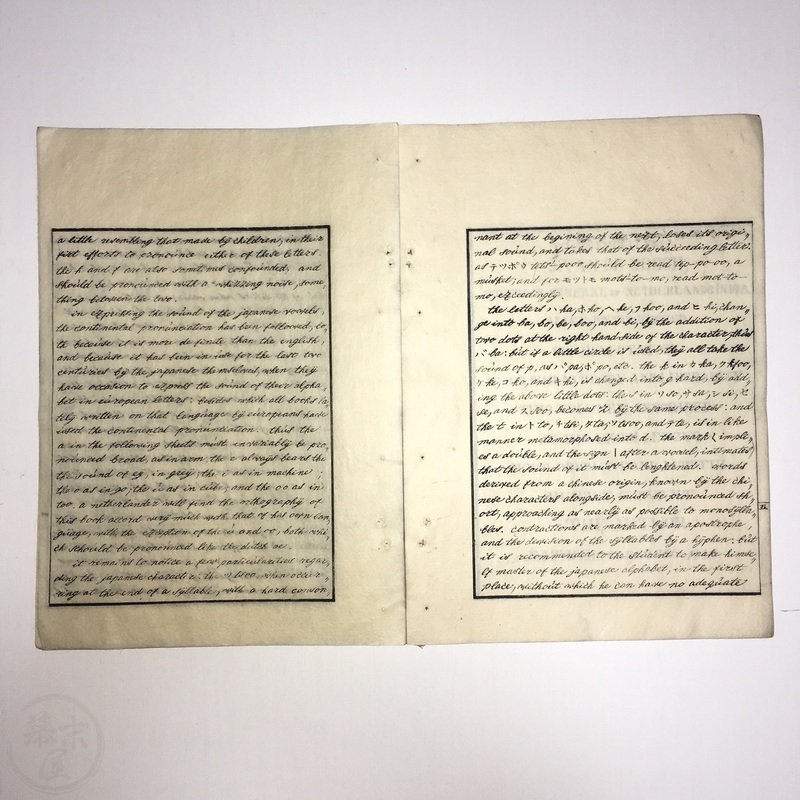 a little resembling that made by children, in their
first efforts to pronounce either of these letters
the h and f are also sometimes confounded, and
should be pronounced with a whizzing noise, some,
thing between the two.
in expressing the sound of the japanese vowels,
the continental pronunciation has been followed,
te because it is more definite than the english,
and because it has been in use for the last two
centuries by the japanese themselves, when they
have occation to express the sound of there alpha,
bet in european letters: besides which all books la,
tely written on that language by europeans have
used the continental pronunciation. thus the
a in the following sheets must invariably be pro,
nounced broad, as in arm. the e always bears the
the sound of ey, in grey; the i as in machine;
the o as in go; the u as in cube; and the oo as in
too. a netherlander will find the orthography of
this book accord very much with that of his own lan,
guage, with the exception of the u and e, both whi,
ch schould be pronounced like the dutch oe.
it remains to notice a few particularities regar,
ding the japanese character. the ツ tsoo, when occur,
ring at the end of a syllable, with a hard conson
nant at the begining of the next, loses its origi,
nal sound, and takes that of the succeeding letter.
as テツポウ tets-po-oo should be read tep-po-oo, a
musket; and for モツトモ mots-to-mo, read mot-to-
mo, exceedingly.
the letters ハ ha, ホ ho, ヘ he, フ hoo, and ヒ hi, chan,
ge into ba, bo, be, boo, and bi, by the addition of
two dots at the right hand side of the character, thus
バ ba: but if a little circle is used, they all take the
sound of p, as パ pa, ポ po, etc. the k in カ ka, ク koo,
ケ ke, コ ko, and キ ki, is changed into g hard, by add,
ing the above little dots: the s in ソ so, サ sa, シ si, セ
se, and ス soo, becomes z by the same process: and
the t in ト to, チ tsi, タ ta, ツ tsoo, and テ te, is in like
manner metamorphosed into d. the mark く imple,
es a double, and the sign | after a vowel, intimates
that the sound of it must be lenghtened. words
derived from a chinese origin, known by the chi,
nese characters alongside, must be pronounced sh,
ort, approaching as nearly as possible to monosylla,
bles. contractions are marked by an apostrophe,
and the division of the syllables by a hyphen: but
it is recommendet to the student to make himse,
lf master of the japanese alphabet, in the first
place, without which he can have no adequate